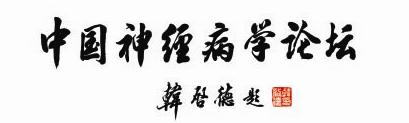 中国神经病学论坛
韩启德题